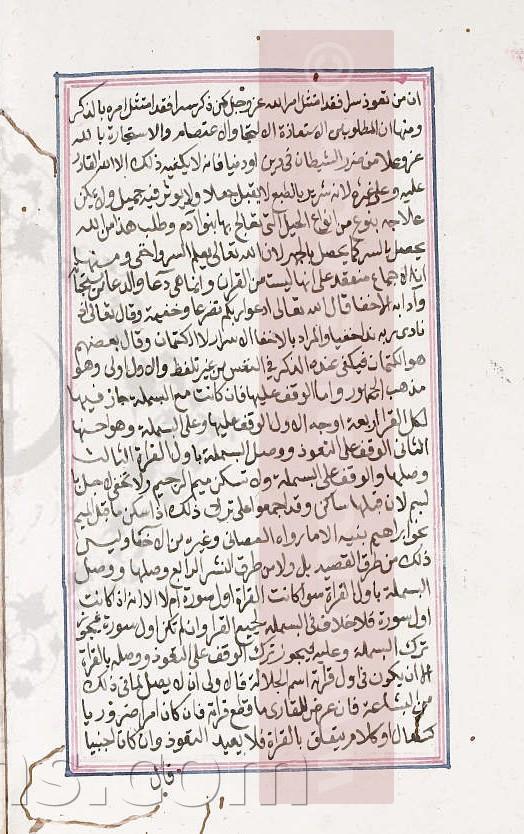 ان من تعوذ سرا فقد امتثل امر الله عز وجل كمن ذكر سرا فقد امتثل امره بالذكر
ومنها ان المطلوب من الاستعاذة الالتجا والاعتصام والاستجارة بالله
عز وعلا من ضرر الشيطان في دين او دنيا فانه لا يكفيه ذلك الا الله القادر
عليه وعلى غيره لانه شرير بالطبع لا يقبل جعلا ولا يوثر فيه جميل ولا يمكن
علاجه بنوع من انواع الحيل التي تعالج بها بنوا آدم وطلب هذا من الله
يحصل بالسر كما يحصل بالجهر لان الله تعالى يعلم السر واخفى ومنها
ان الاجماع منعقد على انها ليست من القران وانما هي دعا والدعا من
وادابه الاخفا قال الله تعالى ادعوا ربكم تضرعا وخفية وقال تعالى اذ
نادى ربه ندا خفيا والمراد بالاخفا الاسرار لا الكتمان وقال بعضهم
هو الكتمان فيكفي عنده الذكر في النفس من غير تلفظ والاول اولى وهو
مذهب الجمهور واما الوقف عليها فان كانت مع البسملة جاز فيها
لكل القرا اربعة اوجه الاول الوقف عليها وعلى البسملة وهو احسنها
الثاني الوقف على التعوذ ووصل البسملة باول القراة الثالث
وصلها والوقف على البسملة ولا تسكن ميم الرجيم ولا تخفى لاجل
الميم لان قبلها ساكن وقد اجمعوا على ترك ذلك اذا سكن ما قبل الميم
نحو ابراهيم بنيه الا ما رواه القصباني وغيره من الاخفا وليس
ذلك من طرق القصيد بل ولا من طرق النشر الرابع وصلها ووصل
البسملة باول القراة سوا كانت القراة اول سورة ام لا الا انه اذا كانت
اول سورة فلا خلاف في البسملة لجميع القرا وان لم تكن اول سورة فيجوز
ترك البسملة وعليه فيجوز ترك الوقف على التعوذ ووصله بالقراة
الا ان يكون في اول قراته اسم الجلالة فالاولى ان لا يصل لما في ذلك
من البشاعة فان عرض للقارى ما قطع قراته فان كان امرا ضروريا
كسعال او كلام يتعلق بالقراة فلا يعيد التعوذ وان كان اجنبيا
قال
ns.com